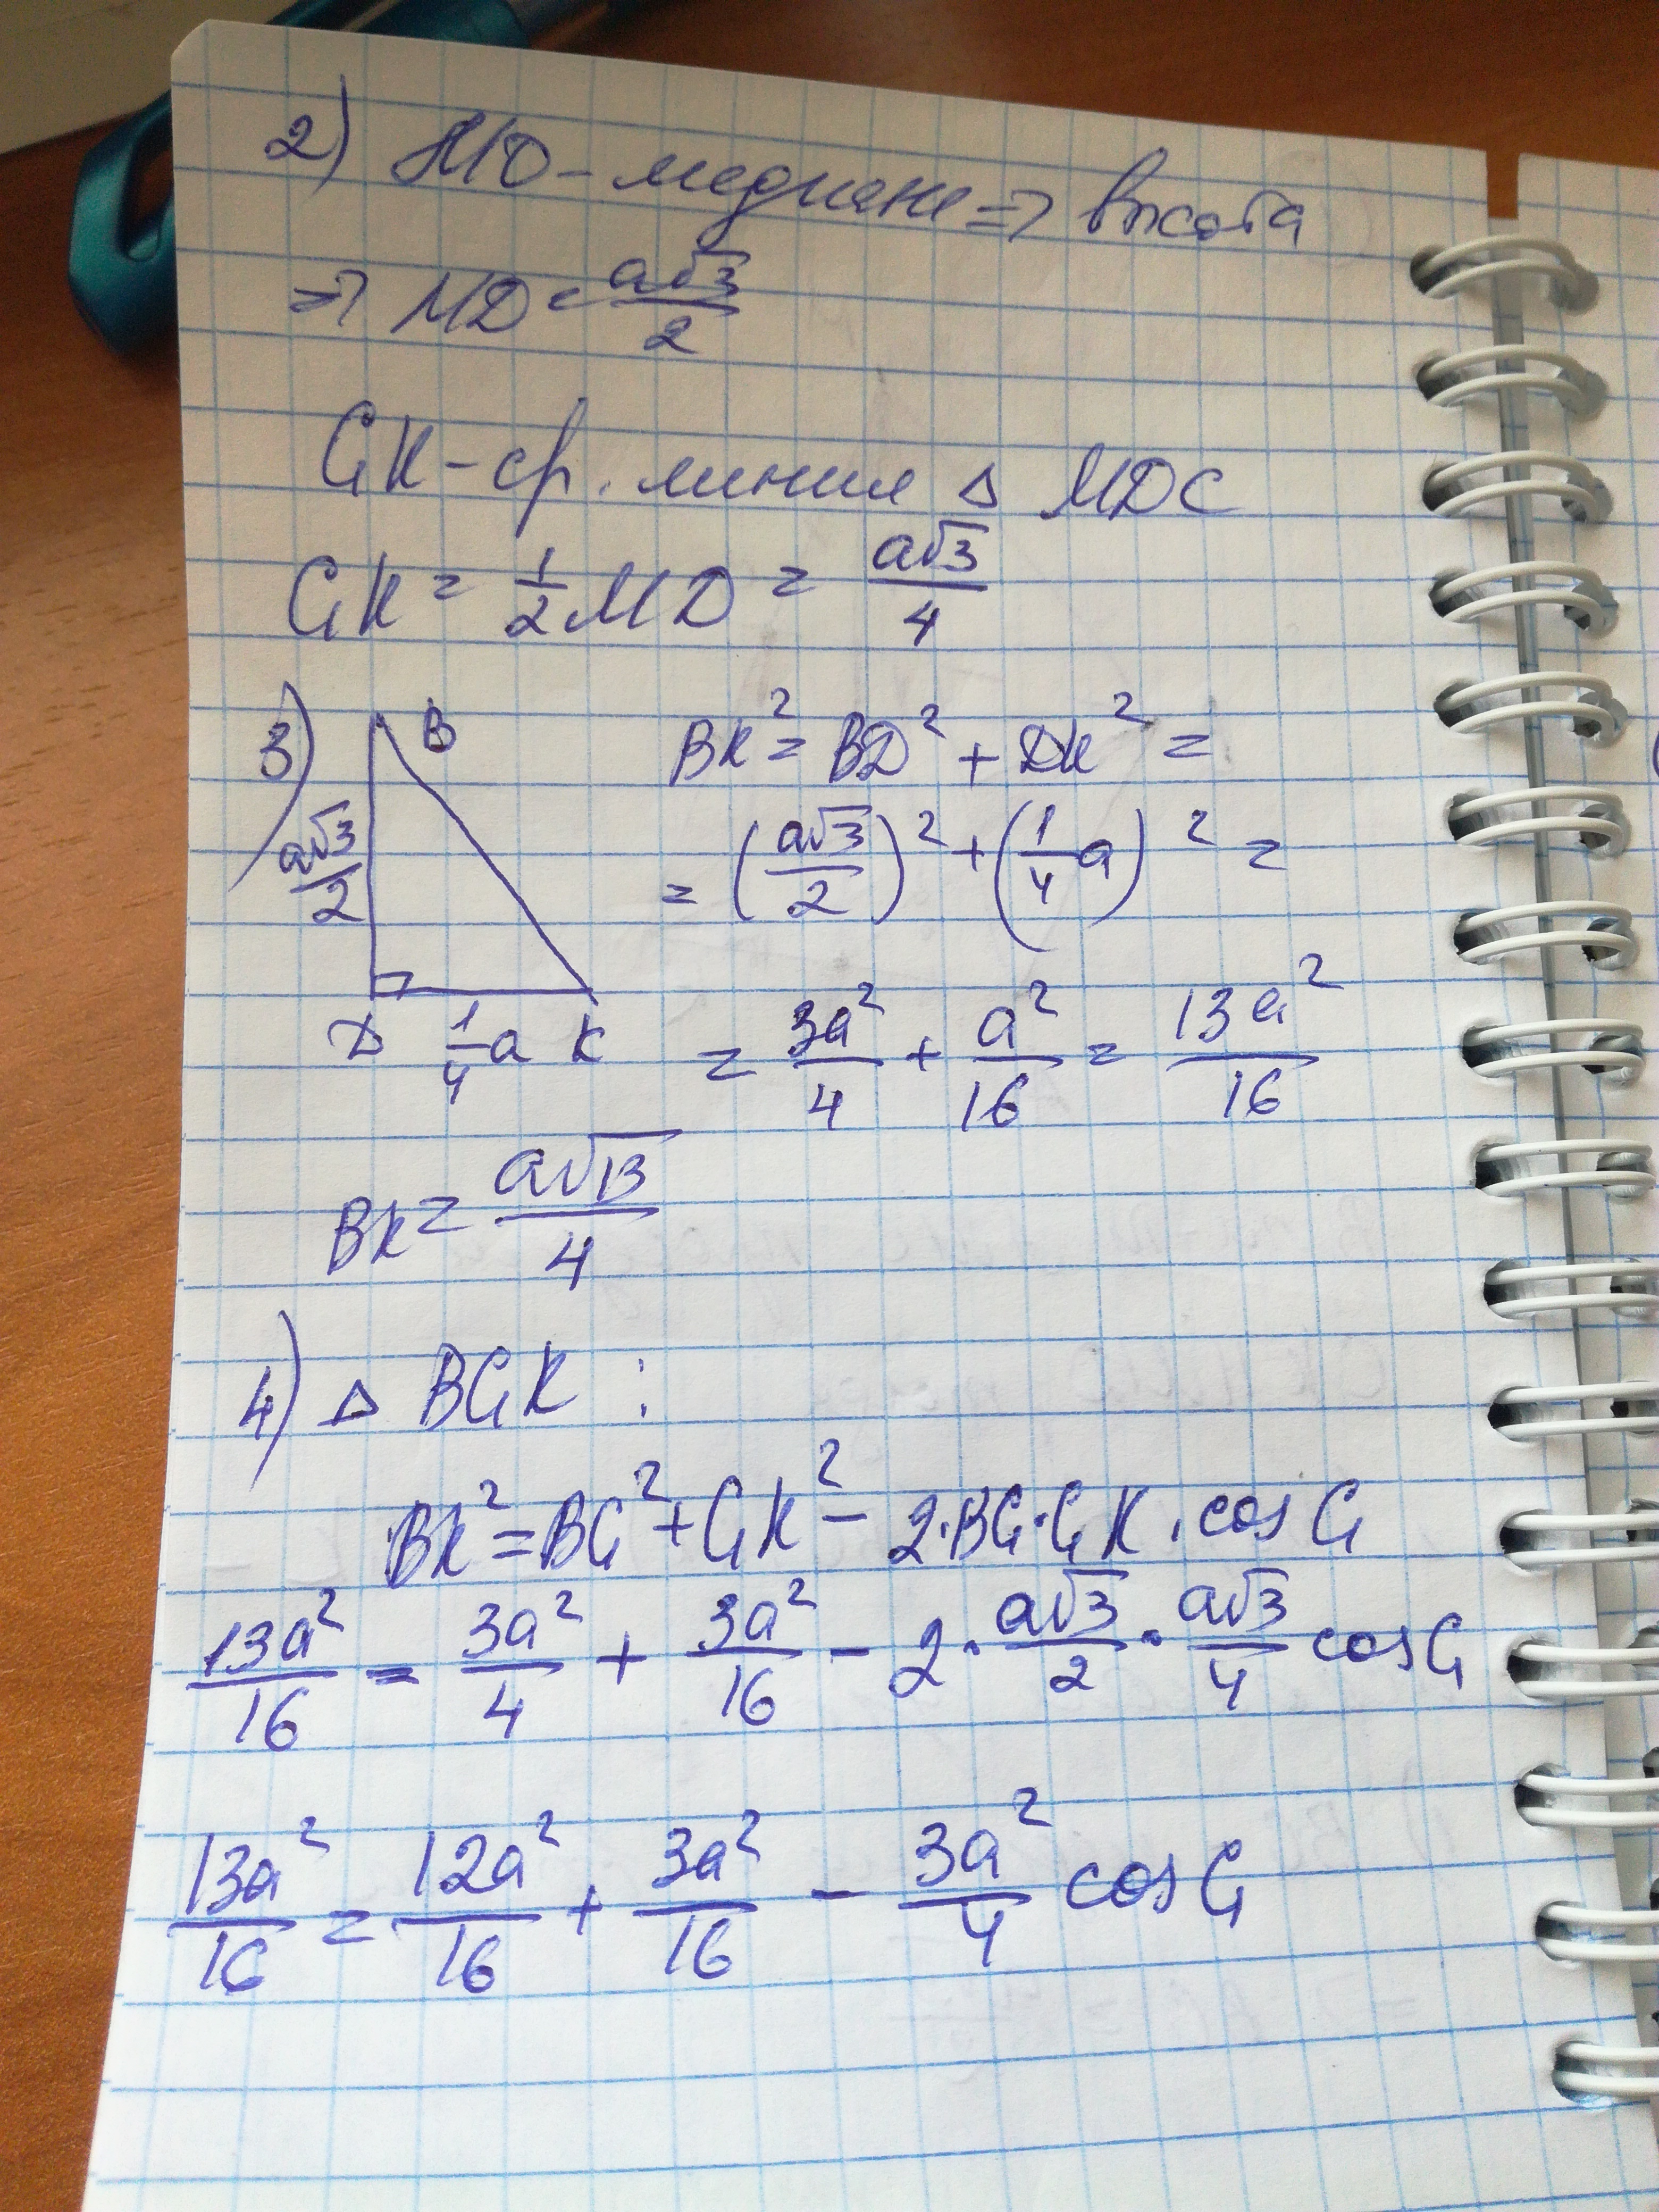 2) MD - медиана => высота
=> MD = a√3/2
GK - ср. линия △ MDC
GK = 1/2 MD = a√3/4
3) B
a√3/2
D 1/4 a K
BK² = BD² + DK² =
= (a√3/2)² + (1/4 a)² =
= 3a²/4 + a²/16 = 13a²/16
BK = a√13/4
4) △ BGK :
BK² = BG² + GK² - 2·BG·GK·cos G
13a²/16 = 3a²/4 + 3a²/16 - 2·a√3/2·a√3/4 cos G
13a²/16 = 12a²/16 + 3a²/16 - 3a²/4 cos G